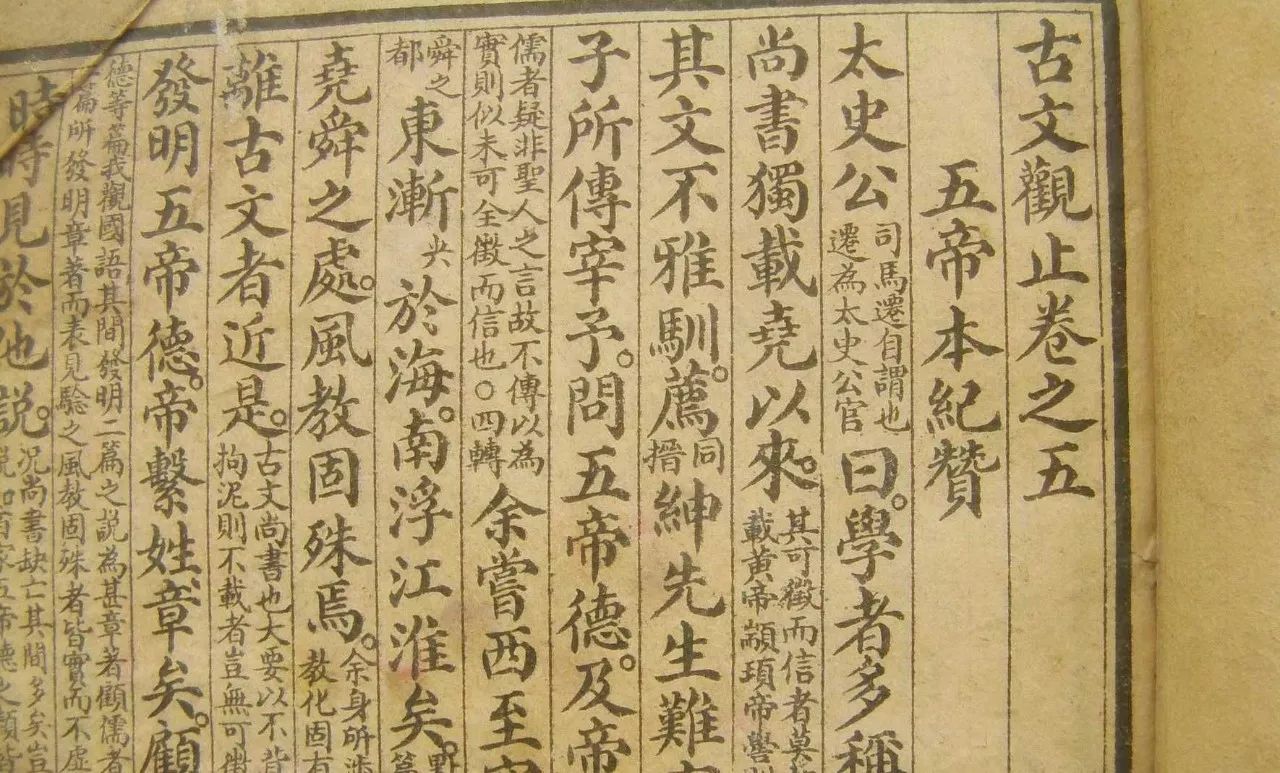 古文觀止卷之五
五帝本紀贊
太史公司馬遷自謂也遷為太史公官曰。學者多稱
尚書獨載堯以來。其可徵而信者莫載黃帝顓頊帝嚳
其文不雅馴。薦同搢紳先生難
子所傳宰予。問五帝德。及帝
儒者疑非聖人之言故不傳以為實則似未可全徵而信也○四轉余嘗西至
舜之都東漸尖於海。南浮江淮矣。
堯舜之處。風教固殊焉。余身所涉教化固有
離古文者近是。古文尚書也大要以不背拘泥則不載者豈無可徵
發明五帝德。帝繫姓章矣。顧
德等篇我觀國語其間發明二篇之說為甚章著顧儒者篇所發明章著而表見驗之風教固殊者皆實而不虛
時時見於他說。況尚書缺亡其間多矣豈說如百家五帝德之類皆